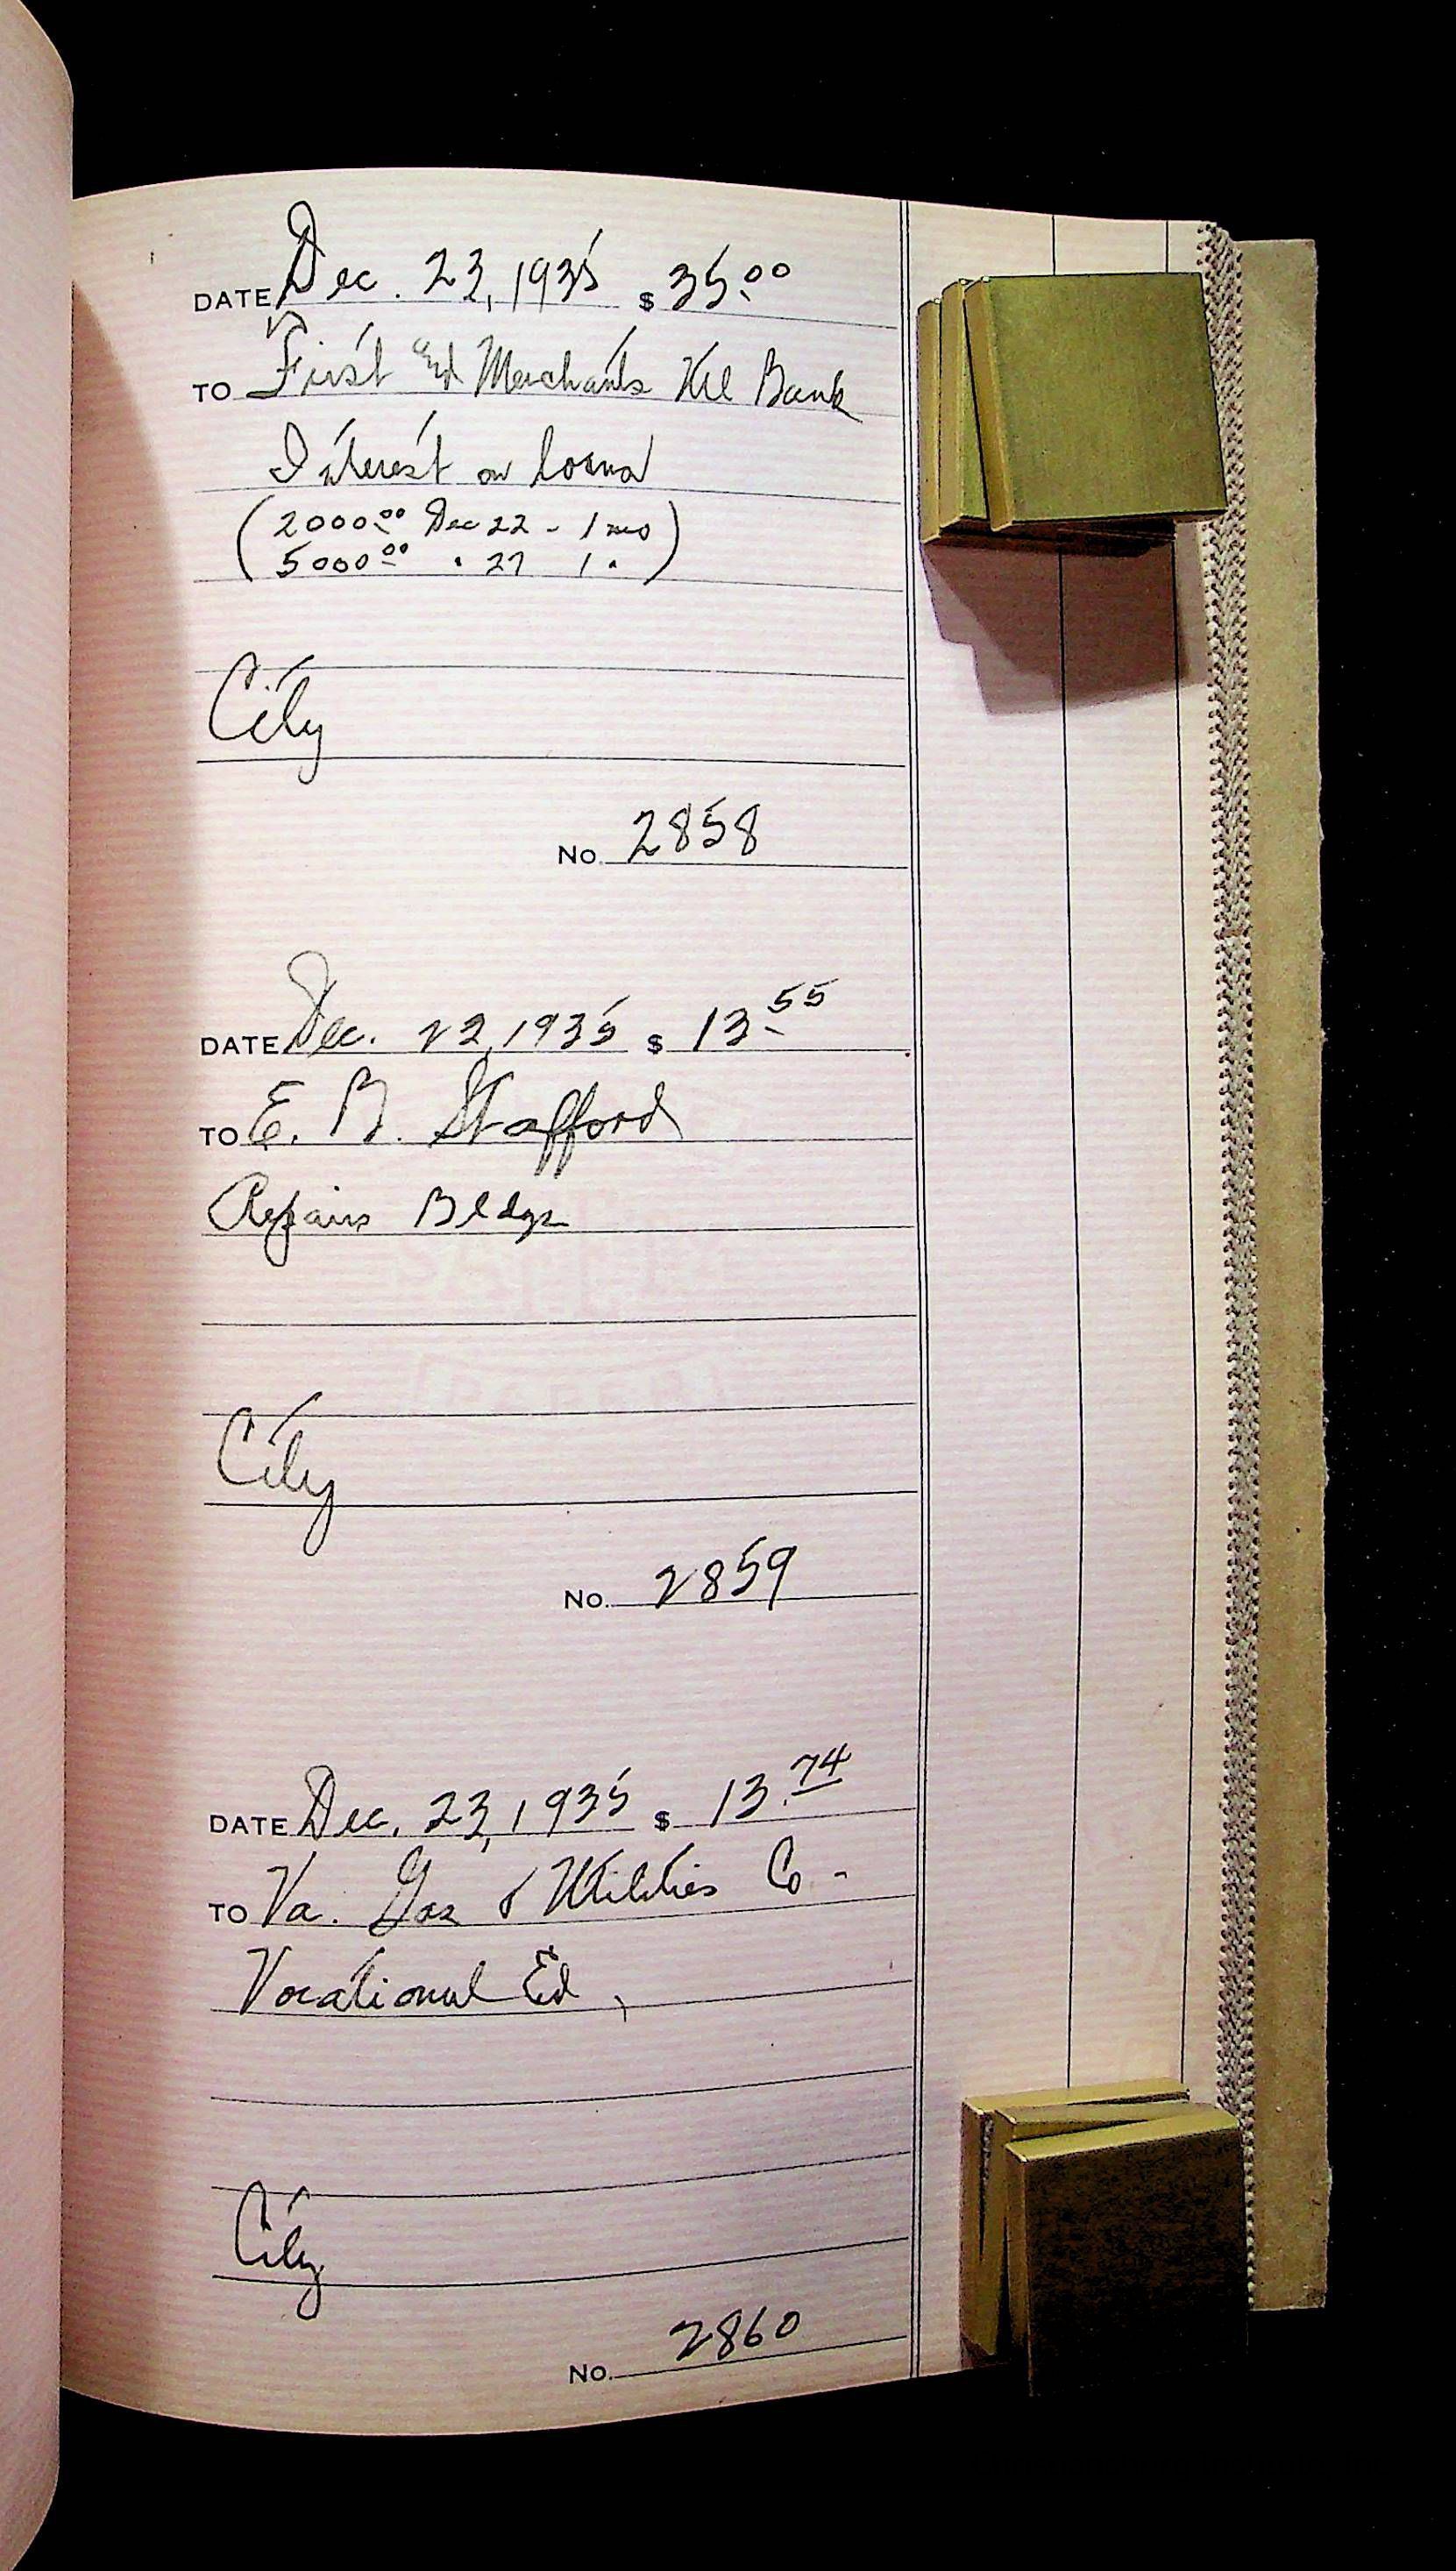 DATE Dec. 23, 1935 $ 35.00
TO First and Merchants Ntl Bank
Interest on loans
(2000.00 Dec 22 - 1 mo)
(5000.00 " 27 1 ")
City
No. 2858
DATE Dec. 23, 1935 $ 13.55
TO E. B. Stafford
Repairs Bldgs
City
No. 2859
DATE Dec. 23, 1935 $ 13.74
TO Va. Gas & Utilities Co -
Vocational Ed,
City
No. 2860